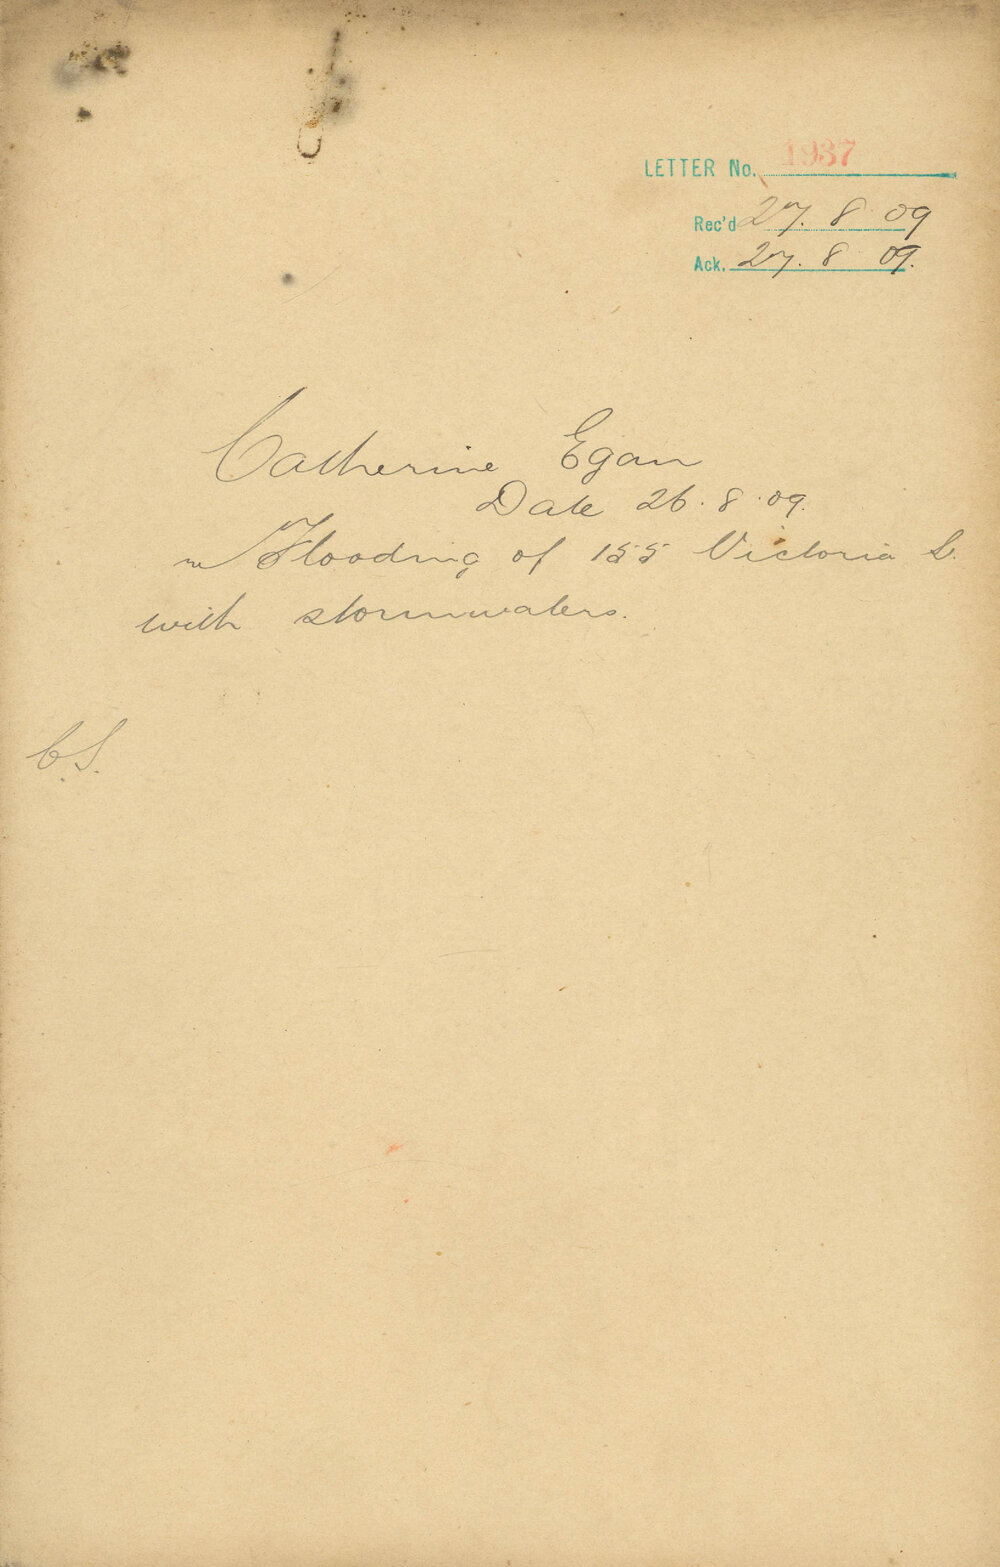 LETTER No. 1937
Rec'd 27. 8 09
Ack. 27. 8 09.
Catherine Egan
Date 26. 8. 09.
re Flooding of 155 Victoria S.
with stormwaters.
C.S.